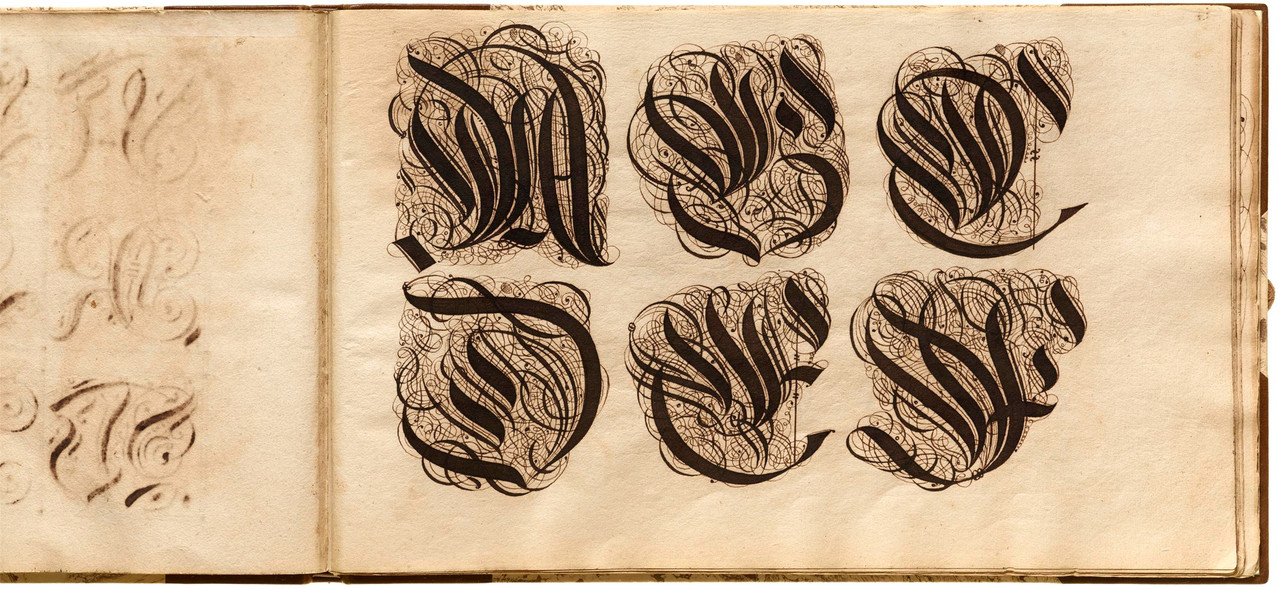 A B C
D E F